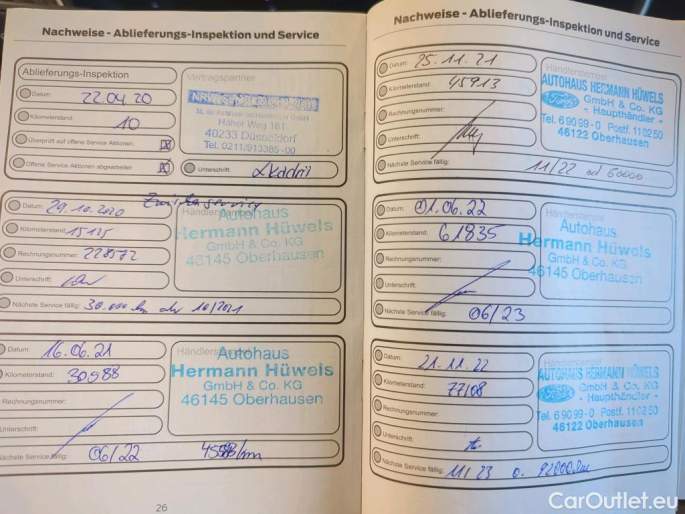 Nachweise - Ablieferungs-Inspektion und Service
Ablieferungs-Inspektion
Datum: 22.04.20
Kilometerstand: 10
Überprüft auf offene Service Aktionen:
Offene Service Aktionen abgearbeitet:
Vertragspartner
Höher Weg 161
40233 Düsseldorf
Tel. 0211/913385-00
Unterschrift:
Datum: 29.10.2020 Zwischenservice
Kilometerstand: 15125
Rechnungsnummer: 228572
Unterschrift:
Händlerstempel
Autohaus
Hermann Hüwels
GmbH & Co. KG
46145 Oberhausen
Nächste Service fällig: 30.000 km od 10/2021
Datum: 16.06.21
Kilometerstand: 30988
Rechnungsnummer:
Unterschrift:
Händlerstempel
Autohaus
Hermann Hüwels
GmbH & Co. KG
46145 Oberhausen
Nächste Service fällig: 06/22
26
Nachweise - Ablieferungs-Inspektion und Service
Datum: 25.11.21
Kilometerstand: 45913
Rechnungsnummer:
Unterschrift:
Händlerstempel
AUTOHAUS HERMANN HÜWELS
Ford GmbH & Co. KG
- Haupthändler -
Tel. 6 90 99 - 0 Postf. 11 02 50
46122 Oberhausen
Nächste Service fällig: 11/22 od 60000
Datum: 01.06.22
Kilometerstand: 61835
Rechnungsnummer:
Unterschrift:
Händlerstempel
Autohaus
Hermann Hüwels
GmbH & Co. KG
46145 Oberhausen
Nächste Service fällig: 06/23
Datum: 21.11.22
Kilometerstand: 77108
Rechnungsnummer:
Unterschrift:
Händlerstempel
AUTOHAUS HERMANN HÜWELS
Ford GmbH & Co. KG
- Haupthändler -
Tel. 6 90 99 - 0 Postf. 11 02 50
46122 Oberhausen
Nächste Service fällig: 11/23 o. 92000 km
CarOutlet.eu